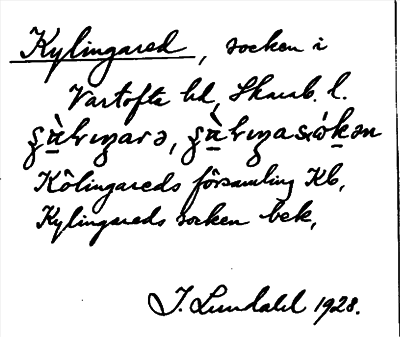 Kylingared, socken i
Vartofta hd, Skarab. l.
Kölingareds församling Kb,
Kylingareds socken bek,
I. Lundahl 1928.